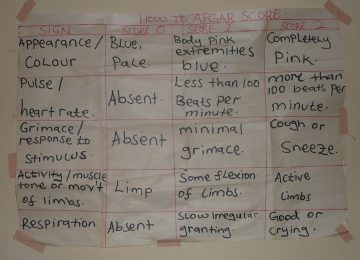 HOW TO APGAR SCORE.
SIGN SCORE 0 SCORE SCORE 2
Appearance / Colour
Blue, Pale.
Body Pink extremities blue.
Completely Pink.
Pulse / heart rate.
Absent.
Less than 100 Beats Per minute.
more than 100 beats Per minute.
Grimace / response to stimulus.
Absent
minimal grimace.
Cough or Sneeze.
Activity / muscle tone or mov't of limbs.
Limp
Some flexion of limbs.
Active Limbs
Respiration
Absent
Slow irregular granting.
Good or crying.